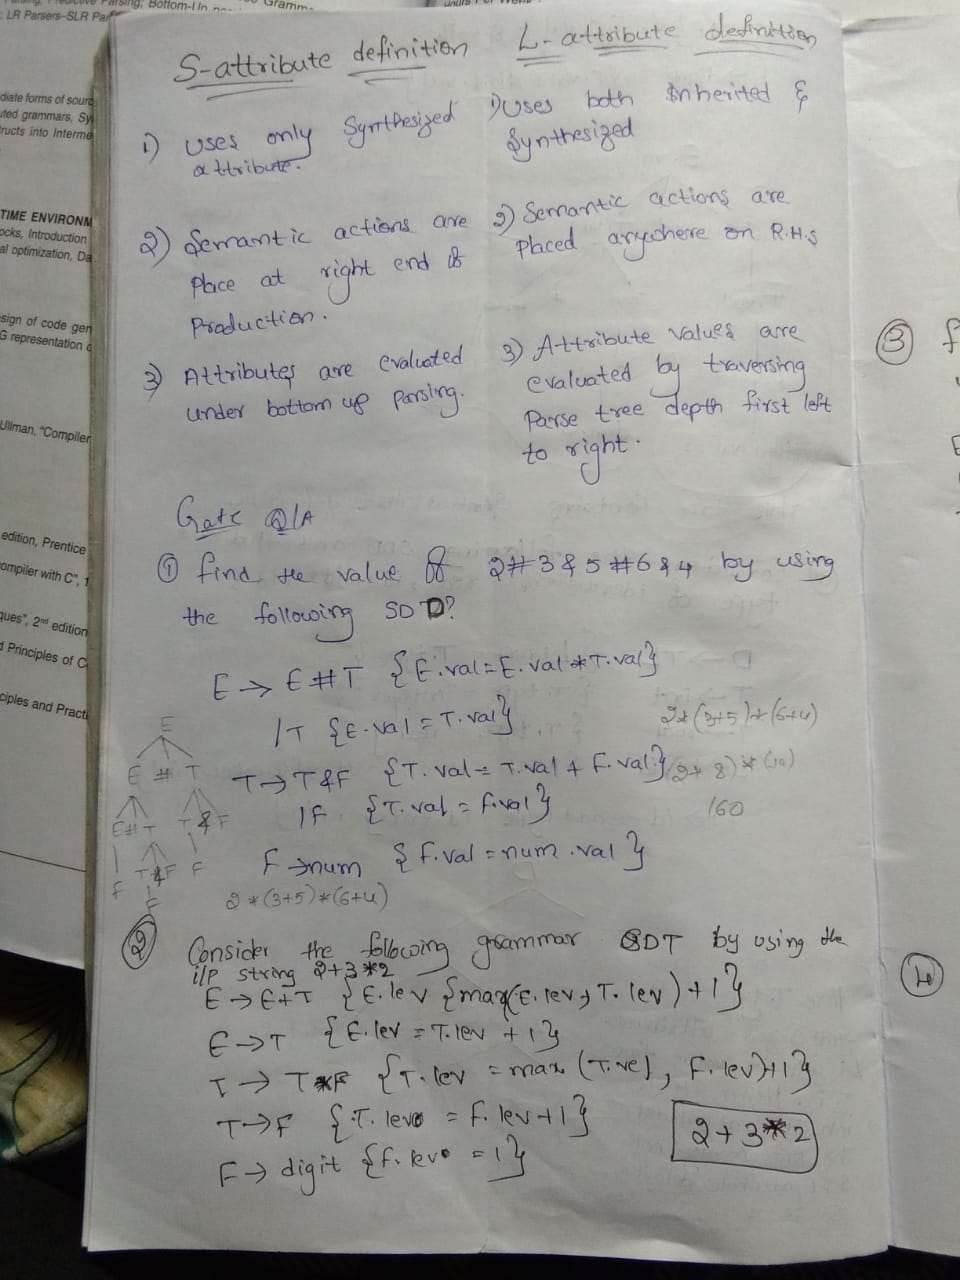 Parsing, Predictive Parsing, Bottom-Up
LR Parsers–SLR Par
diate forms of sourc
uted grammars, Sy
ructs into Interme
TIME ENVIRONM
ocks, Introduction
al optimization, Da
sign of code gen
G representation o
Ullman, "Compiler
edition, Prentice
ompiler with C", 1
ques", 2nd edition
d Principles of C
ciples and Practi
S-attribute definition
1) Uses only Synthesized
attribute.
2) Semantic actions are
place at right end of
Production.
3) Attributes are evaluated
under bottom up Parsing.
L-attribute definition
1) Uses both Inherited &
Synthesized
2) Semantic actions are
Placed anywhere on R.H.S
3) Attribute Values are
evaluated by traversing
Parse tree depth first left
to right.
Gate Q/A
① find the value of 2#3&5#6&4 by using
the following SDD?
E → E#T {E.val=E.val*T.val}
/T {E.val=T.val}
T→T&F {T.val= T.val + F.val}
IF {T.val = F.val}
F→num {F.val=num.val}
2*(3+5)*(6+4)
(2* 8)*(10)
160
E
E # T
E#T T&F
F T&F F
F
2*(3+5)*(6+4)
② Consider the following grammar SDT by using the
i/p string 2+3*2
E→E+T {E.lev {max(E.lev, T.lev)+1}
E→T {E.lev = T.lev +1}
T→ T*F {T.lev = max (T.vel, F.lev)+1}
T→F {T.lev = F.lev+1}
F→ digit {F.lev =1}
2+3*2
③ f
E
④